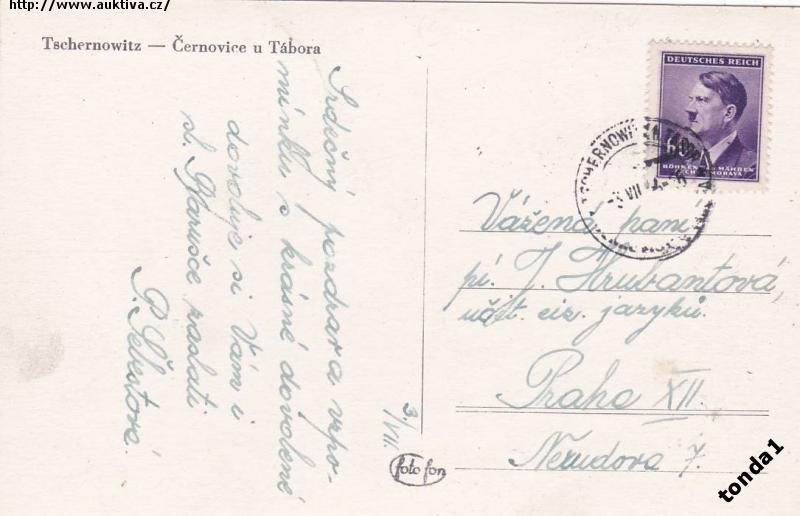 http://www.auktiva.cz/
Tschernowitz — Černovice u Tábora
Srdečný pozdrav a vzpo-
mínku s krásné dovolené
dovoluje si Vám i
sl. zaslati
P. Šelestová.
3./VII.
foto fon
DEUTSCHES REICH
60
BÖHMEN UND MÄHREN
ČECHY A MORAVA
TSCHERNOWITZ
-3.VII
Vážená paní
pí. J. Hrubantová,
učit. ciz. jazyků.
Praha XII.
Nerudova 7.
tonda1